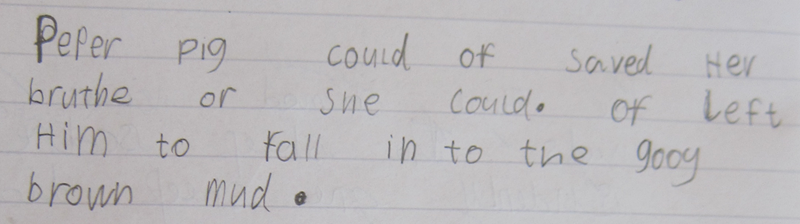 Peper pig could of saved Her
bruthe or she could. of left
Him to fall in to the gooy
brown mud.